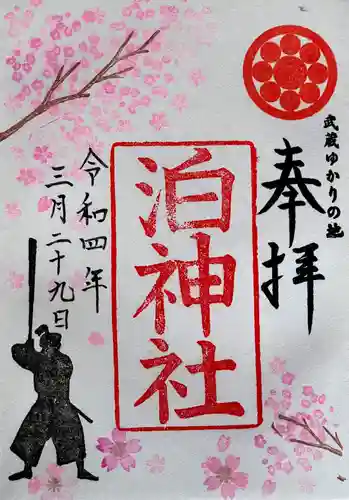 武蔵ゆかりの地
奉拝
泊神社
令和四年
三月二十九日